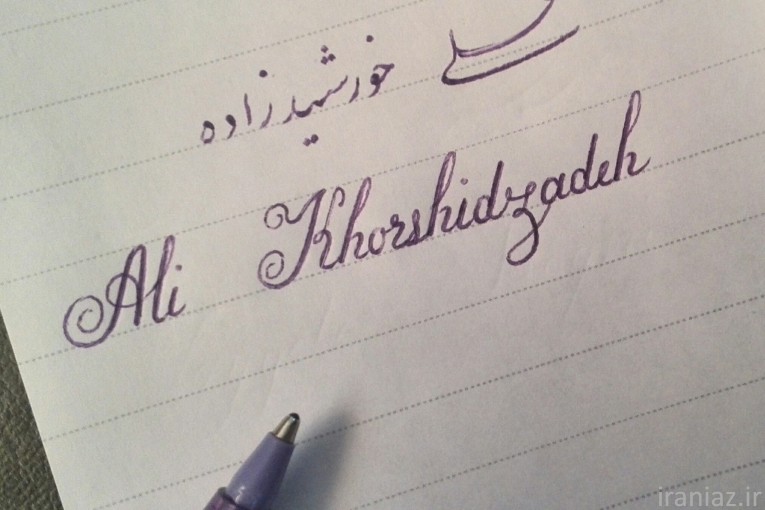 علی خورشیدزاده
Ali Khorshidzadeh
iraniaz.ir